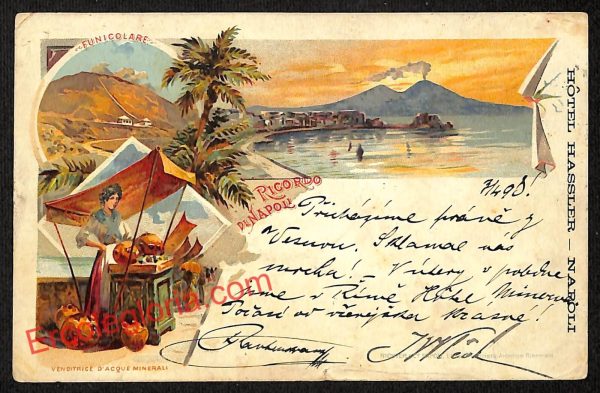 "FUNICOLARE"
RICORDO
DI NAPOLI
HÔTEL HASSLER – NAPOLI
7/4 98!
Přicházíme právě z
Vesuvu. Sklamal nás
mrcha! – V úterý v poledne
jsme v Římě Hôtel Minerva
Počasí od včerejška krásné!
VENDITRICE D'ACQUE MINERALI